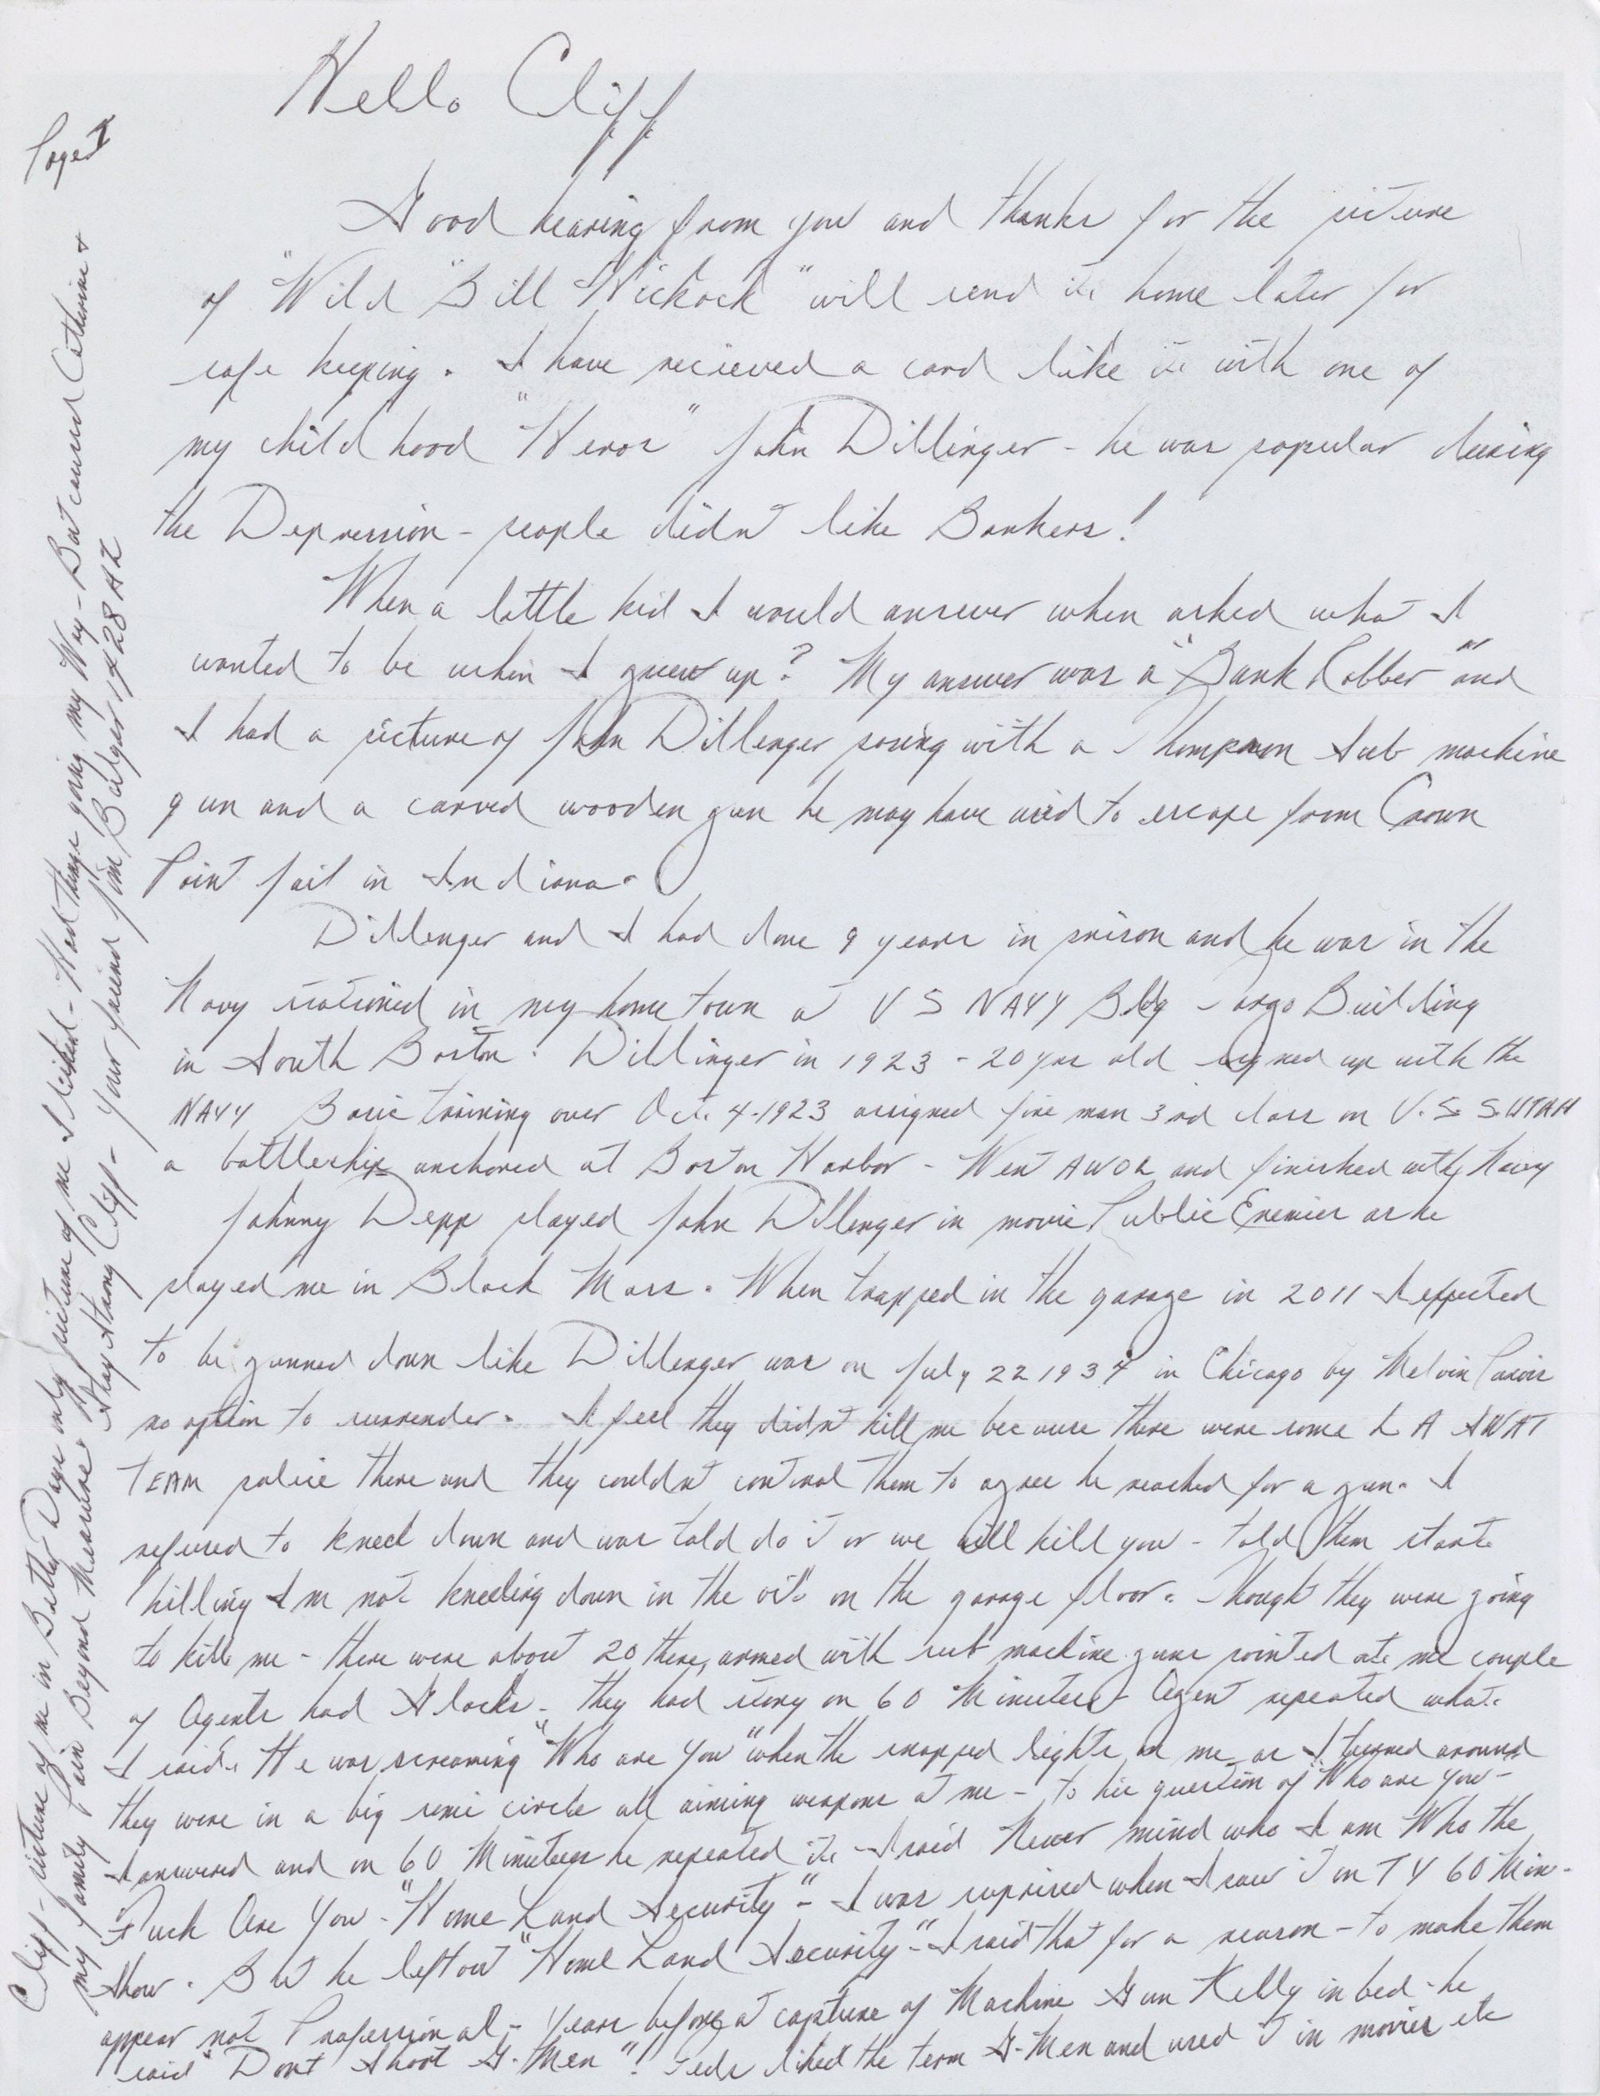 Hello Cliff
Page 1
Good hearing from you and thanks for the picture
of "Wild "Bill Hickock" will send it home later for
safe keeping. I have recieved a card like it with one of
my child hood "Heros" John Dillinger - he was popular during
the Depression - people didn't like Bankers!
When a little kid I would answer when asked what I
wanted to be when I grew up? My answer was a "Bank Robber" and
I had a picture of John Dillenger posing with a Thompson Sub machine
gun and a carved wooden gun he may have used to escape from Crown
Point Jail in Indiana.
Dillenger and I had done 9 years in prison and he was in the
Navy stationed in my home town at US NAVY Bldg Fargo Building
in South Boston. Dillinger in 1923 - 20 yrs old signed up with the
NAVY Basic training over Oct. 4-1923 assigned fire man 3rd class on U.S.S. UTAH
a battleship anchored at Boston Harbor - Went AWOL and finished with Navy
Johnny Depp played John Dillenger in movie Public Enemies as he
played me in Black Mass. When trapped in the garage in 2011 I expected
to be gunned down like Dillenger was on July 22 1934 in Chicago by Melvin Purvis
no option to surrender. I feel they didn't kill me because there were some L A SWAT
TEAM police there and they couldn't control them to agree he reached for a gun. I
refused to kneel down and was told do it or we will kill you - told them start
killing I'm not kneeling down in the oil" on the garage floor. Thought they were going
to kill me - there were about 20 there, armed with sub machine guns pointed at me couple
of Agents had Glocks - they had story on 60 Minutes - Agent repeated what
I said. He was screaming "Who are You" when the snapped lights on me as I turned around
they were in a big semi circle all aiming weapons at me - to his question of "Who are you -
I answered and on 60 Minutes he repeated it - I said Never mind who I am Who the
Fuck Are You - "Home Land Security" - I was suprised when I saw it on TV 60 Min-
Show. But he left out "Home Land Security" - I said that for a reason - to make them
appear not Professional - Years before at capture of Machine Gun Kelly in bed - he
said "Dont Shoot G-Men"! Feds liked the term G-Men and used it in movies etc
Cliff - picture of me in Better Days only picture of me I liked - Had things going my Way - But caused Catherine &
my family Pain Beyond Measure Stay Strong Cliff - Your friend Jim Bulger 1428 AZ